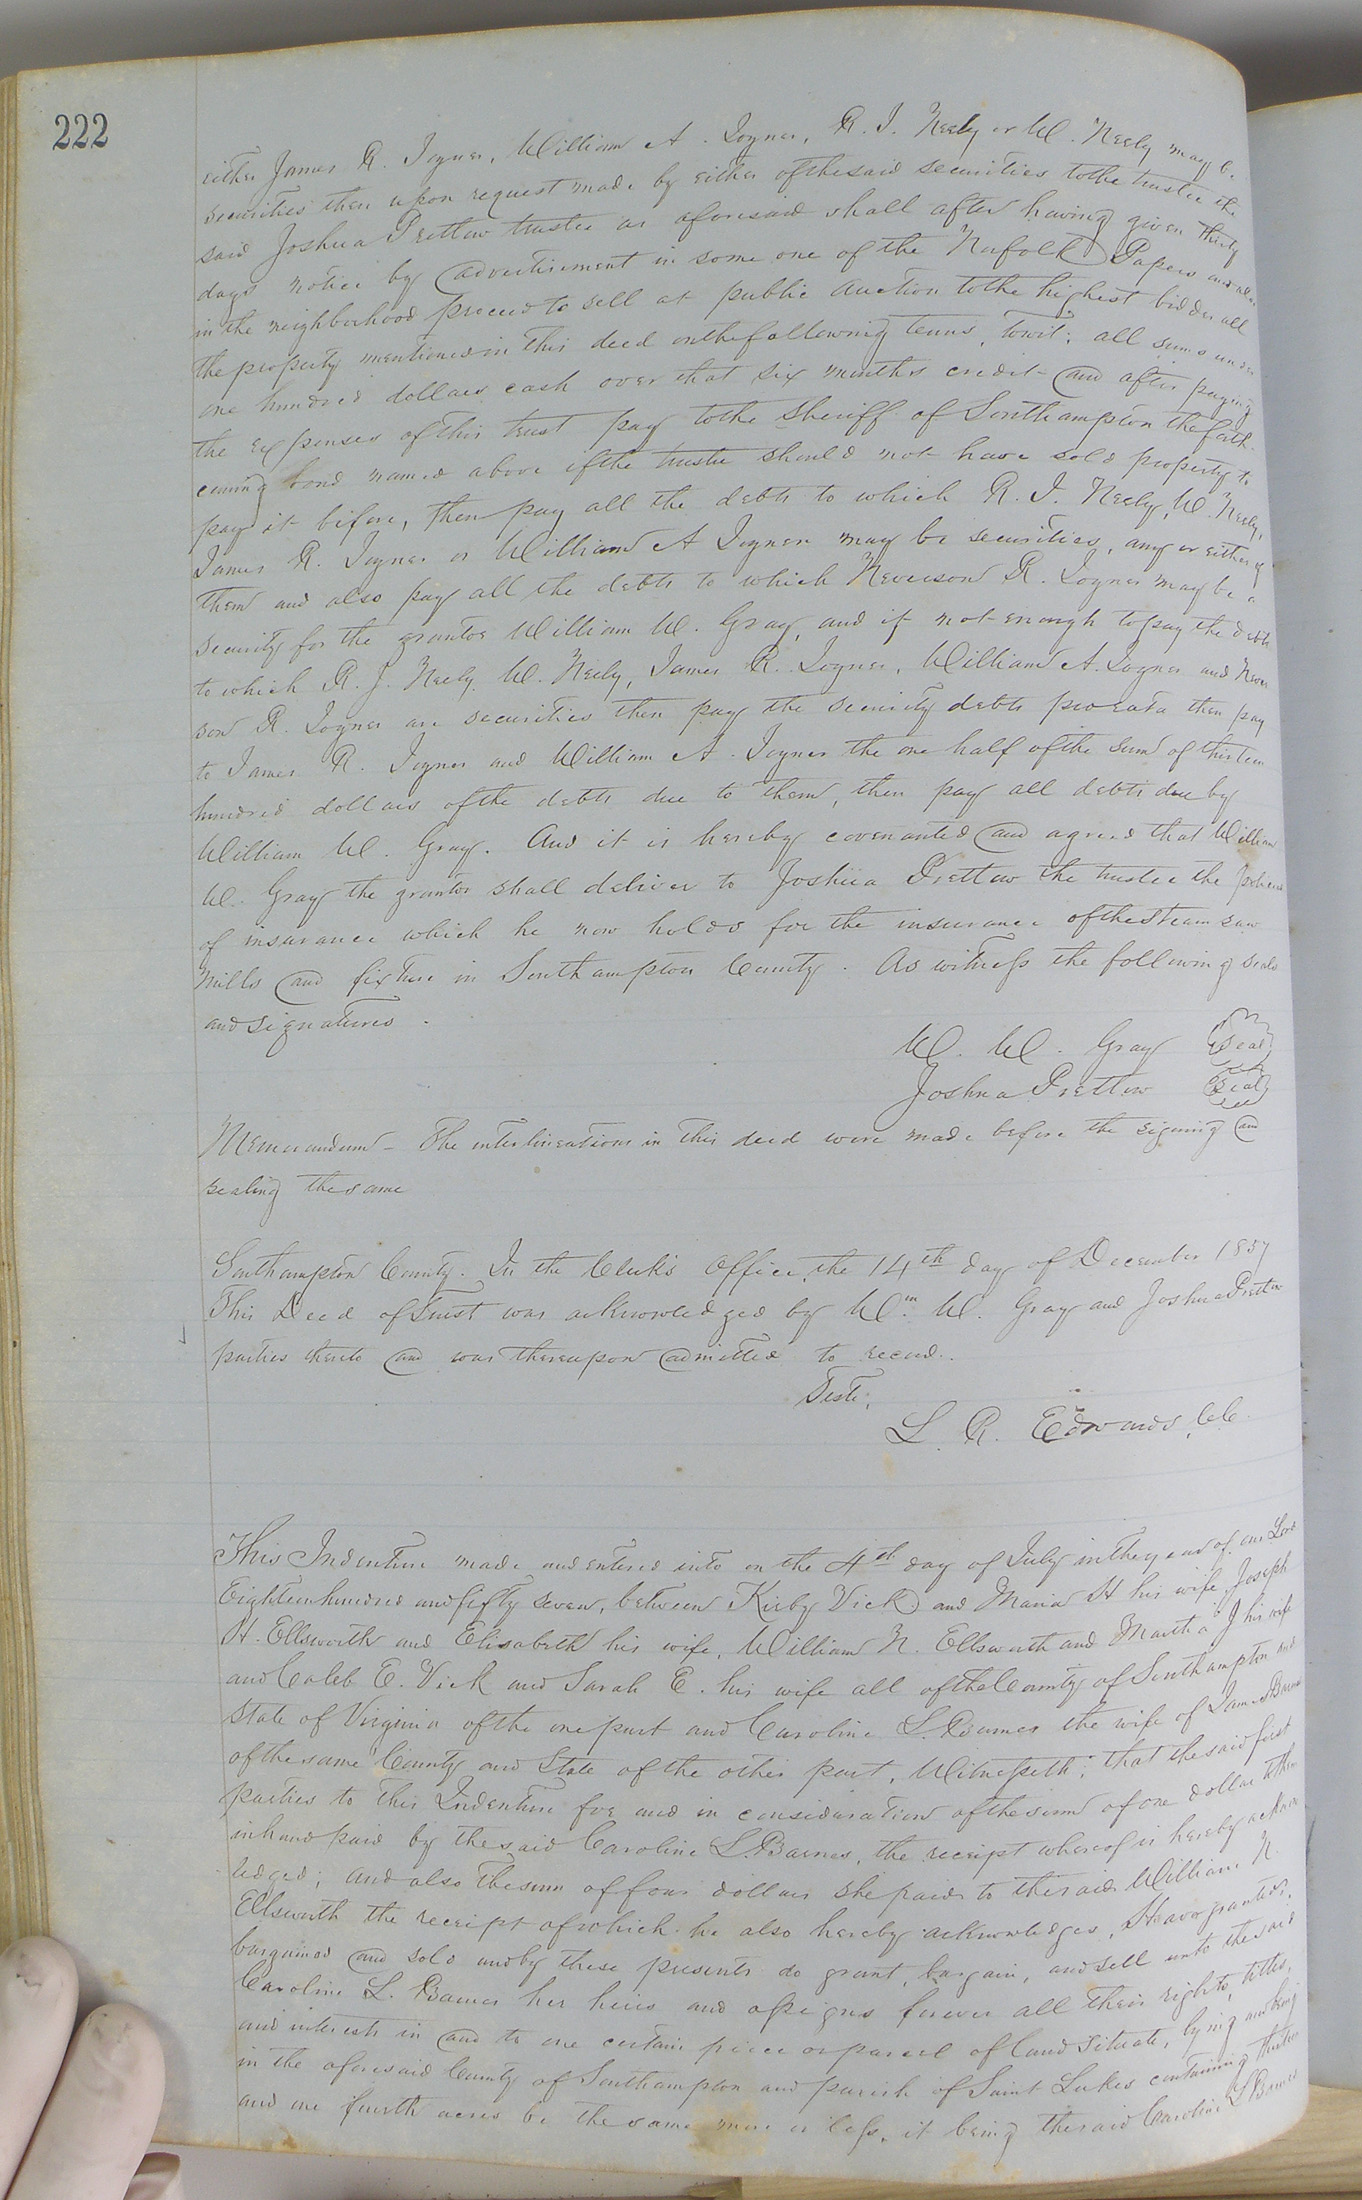 222
either James R. Joyner, William A. Joyner, R. J. Neely or W. Neely may be
securities then upon request made by either of the said securities to the trustee the
said Joshua Pretlow trustee as aforesaid shall after having given thirty
days notice by advertisement in some one of the Norfolk Papers and also
in the neighborhood proceed to sell at public auction to the highest bidder all
the property mentioned in this deed on the following terms, towit; all sums under
one hundred dollars cash over that six months credit and after paying
the expenses of this trust pay to the Sheriff of Southampton the forth
coming bond named above if the trustee should not have sold property to
pay it before, then pay all the debts to which R. J. Neely, W. Neely,
James R. Joyner or William A Joyner may be securities, any or either of
them and also pay all the debts to which Neverson R. Joyner may be a
security for the grantor William W. Gray, and if not enough to pay the debts
to which R. J. Neely, W. Neely, James R. Joyner, William A. Joyner and Never
son R. Joyner are securities then pay the security debts prorata then pay
to James R. Joyner and William A. Joyner the one half of the sum of thirteen
hundred dollars of the debts due to them, then pay all debts due by
William W. Gray. And it is hereby covenanted and agreed that William
W. Gray the grantor shall deliver to Joshua Pretlow the trustee the policies
of insurance which he now holds for the insurance of the Steam saw
mills and fixture in Southampton County. As witness the following seals
and signatures.
W. W. Gray Seal
Joshua Pretlow Seal
Memorandum - The interlineations in this deed were made before the signing and
sealing the same
Southampton County. In the Clerk's Office, the 14th day of December 1857
This Deed of Trust was acknowledged by Wm. W. Gray and Joshua Pretlow
parties thereto and was thereupon admitted to record.
Teste,
L. R. Edwards, C.C.
This Indenture made and entered into on the 4th day of July in the year of our Lord
Eighteen hundred and fifty seven, between Kirby Vick and Maria H his wife, Joseph
H. Ellsworth and Elisabeth his wife, William N. Ellsworth and Martha J his wife
and Caleb E. Vick and Sarah E. his wife all of the County of Southampton and
State of Virginia of the one part and Caroline L. Barnes the wife of James Barnes
of the same County and State of the other part, Witnesseth; that the said first
parties to this Indenture for and in consideration of the sum of one dollar to them
in hand paid by the said Caroline L. Barnes, the receipt whereof is hereby acknow
ledged; and also the sum of four dollars she paid to the said William N.
Ellsworth the receipt of which he also hereby acknowledges, Have granted,
bargained and sold and by these presents do grant, bargain, and sell unto the said
Caroline L. Barnes her heirs and assigns forever all their rights, titles,
and interests in and to one certain piece or parcel of land situate, lying and being
in the aforesaid County of Southampton and parish of Saint Lukes containing thirteen
and one fourth acres be the same more or less, it being the said Caroline L Barnes